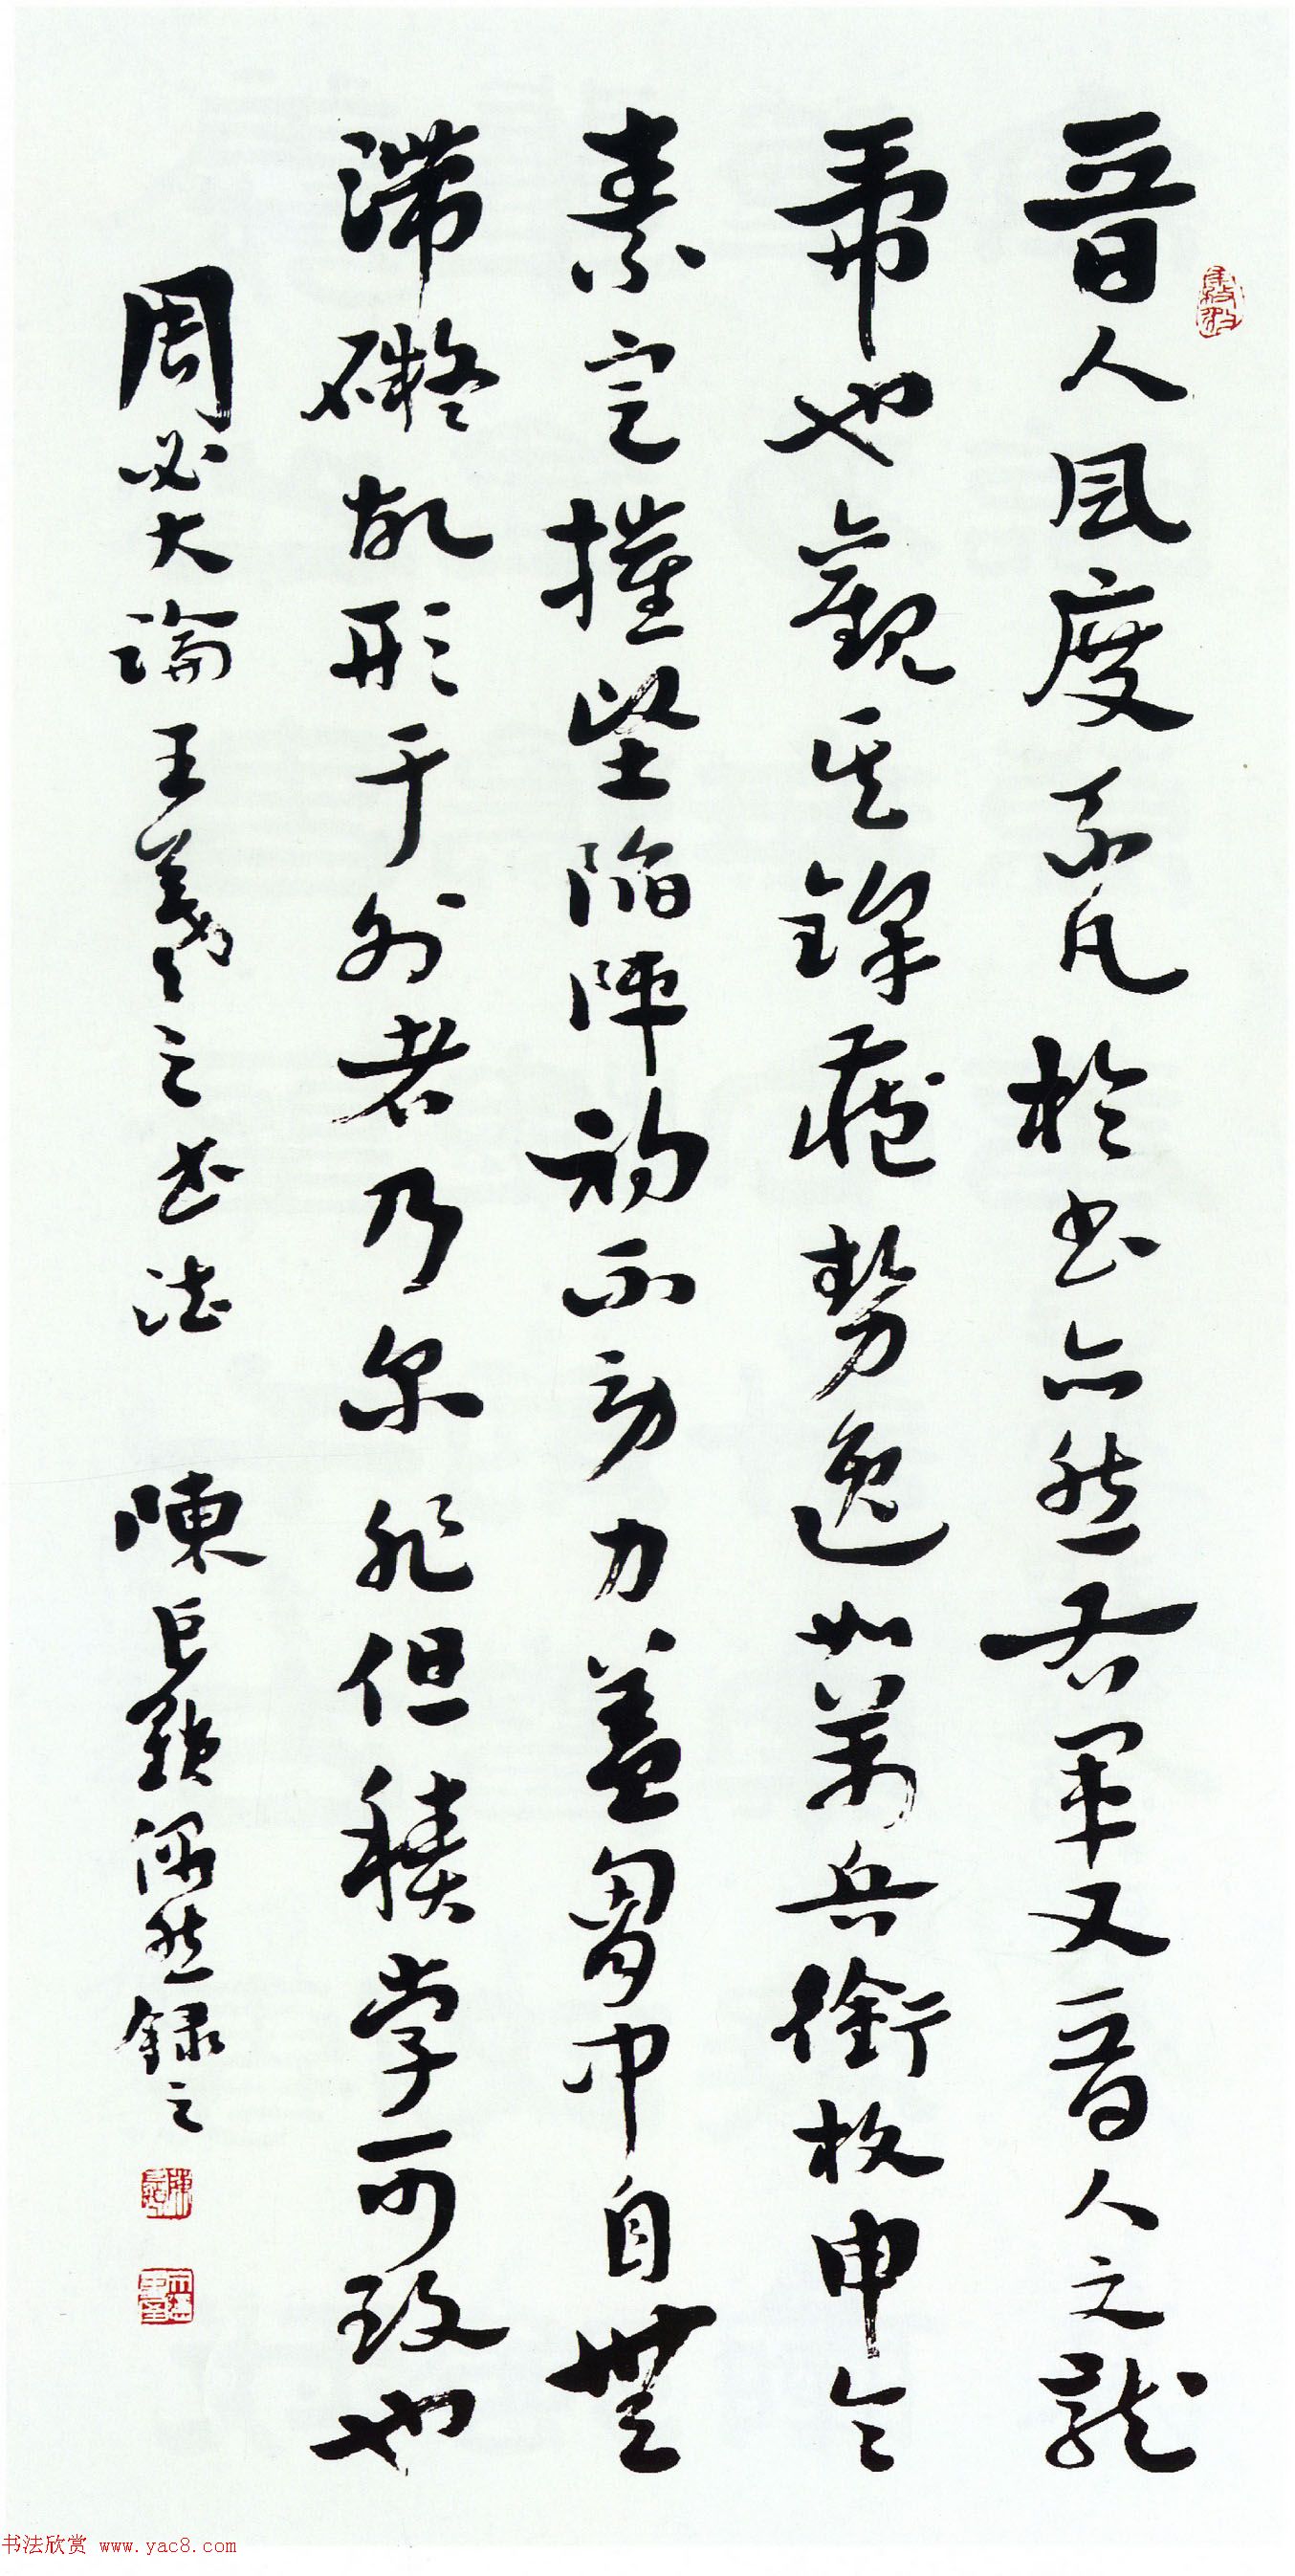 晋人风度不凡於书亦然右军又晋人之龙
虎也观其锋藏势逸如万兵衔枚申令
素定摧坚陷阵初不劳力盖胸中自无
滞碍故形于外者乃尔非但积学可致也
周必大论王羲之之书法 陈巨锁偶然录之
书法欣赏 www.yac8.com